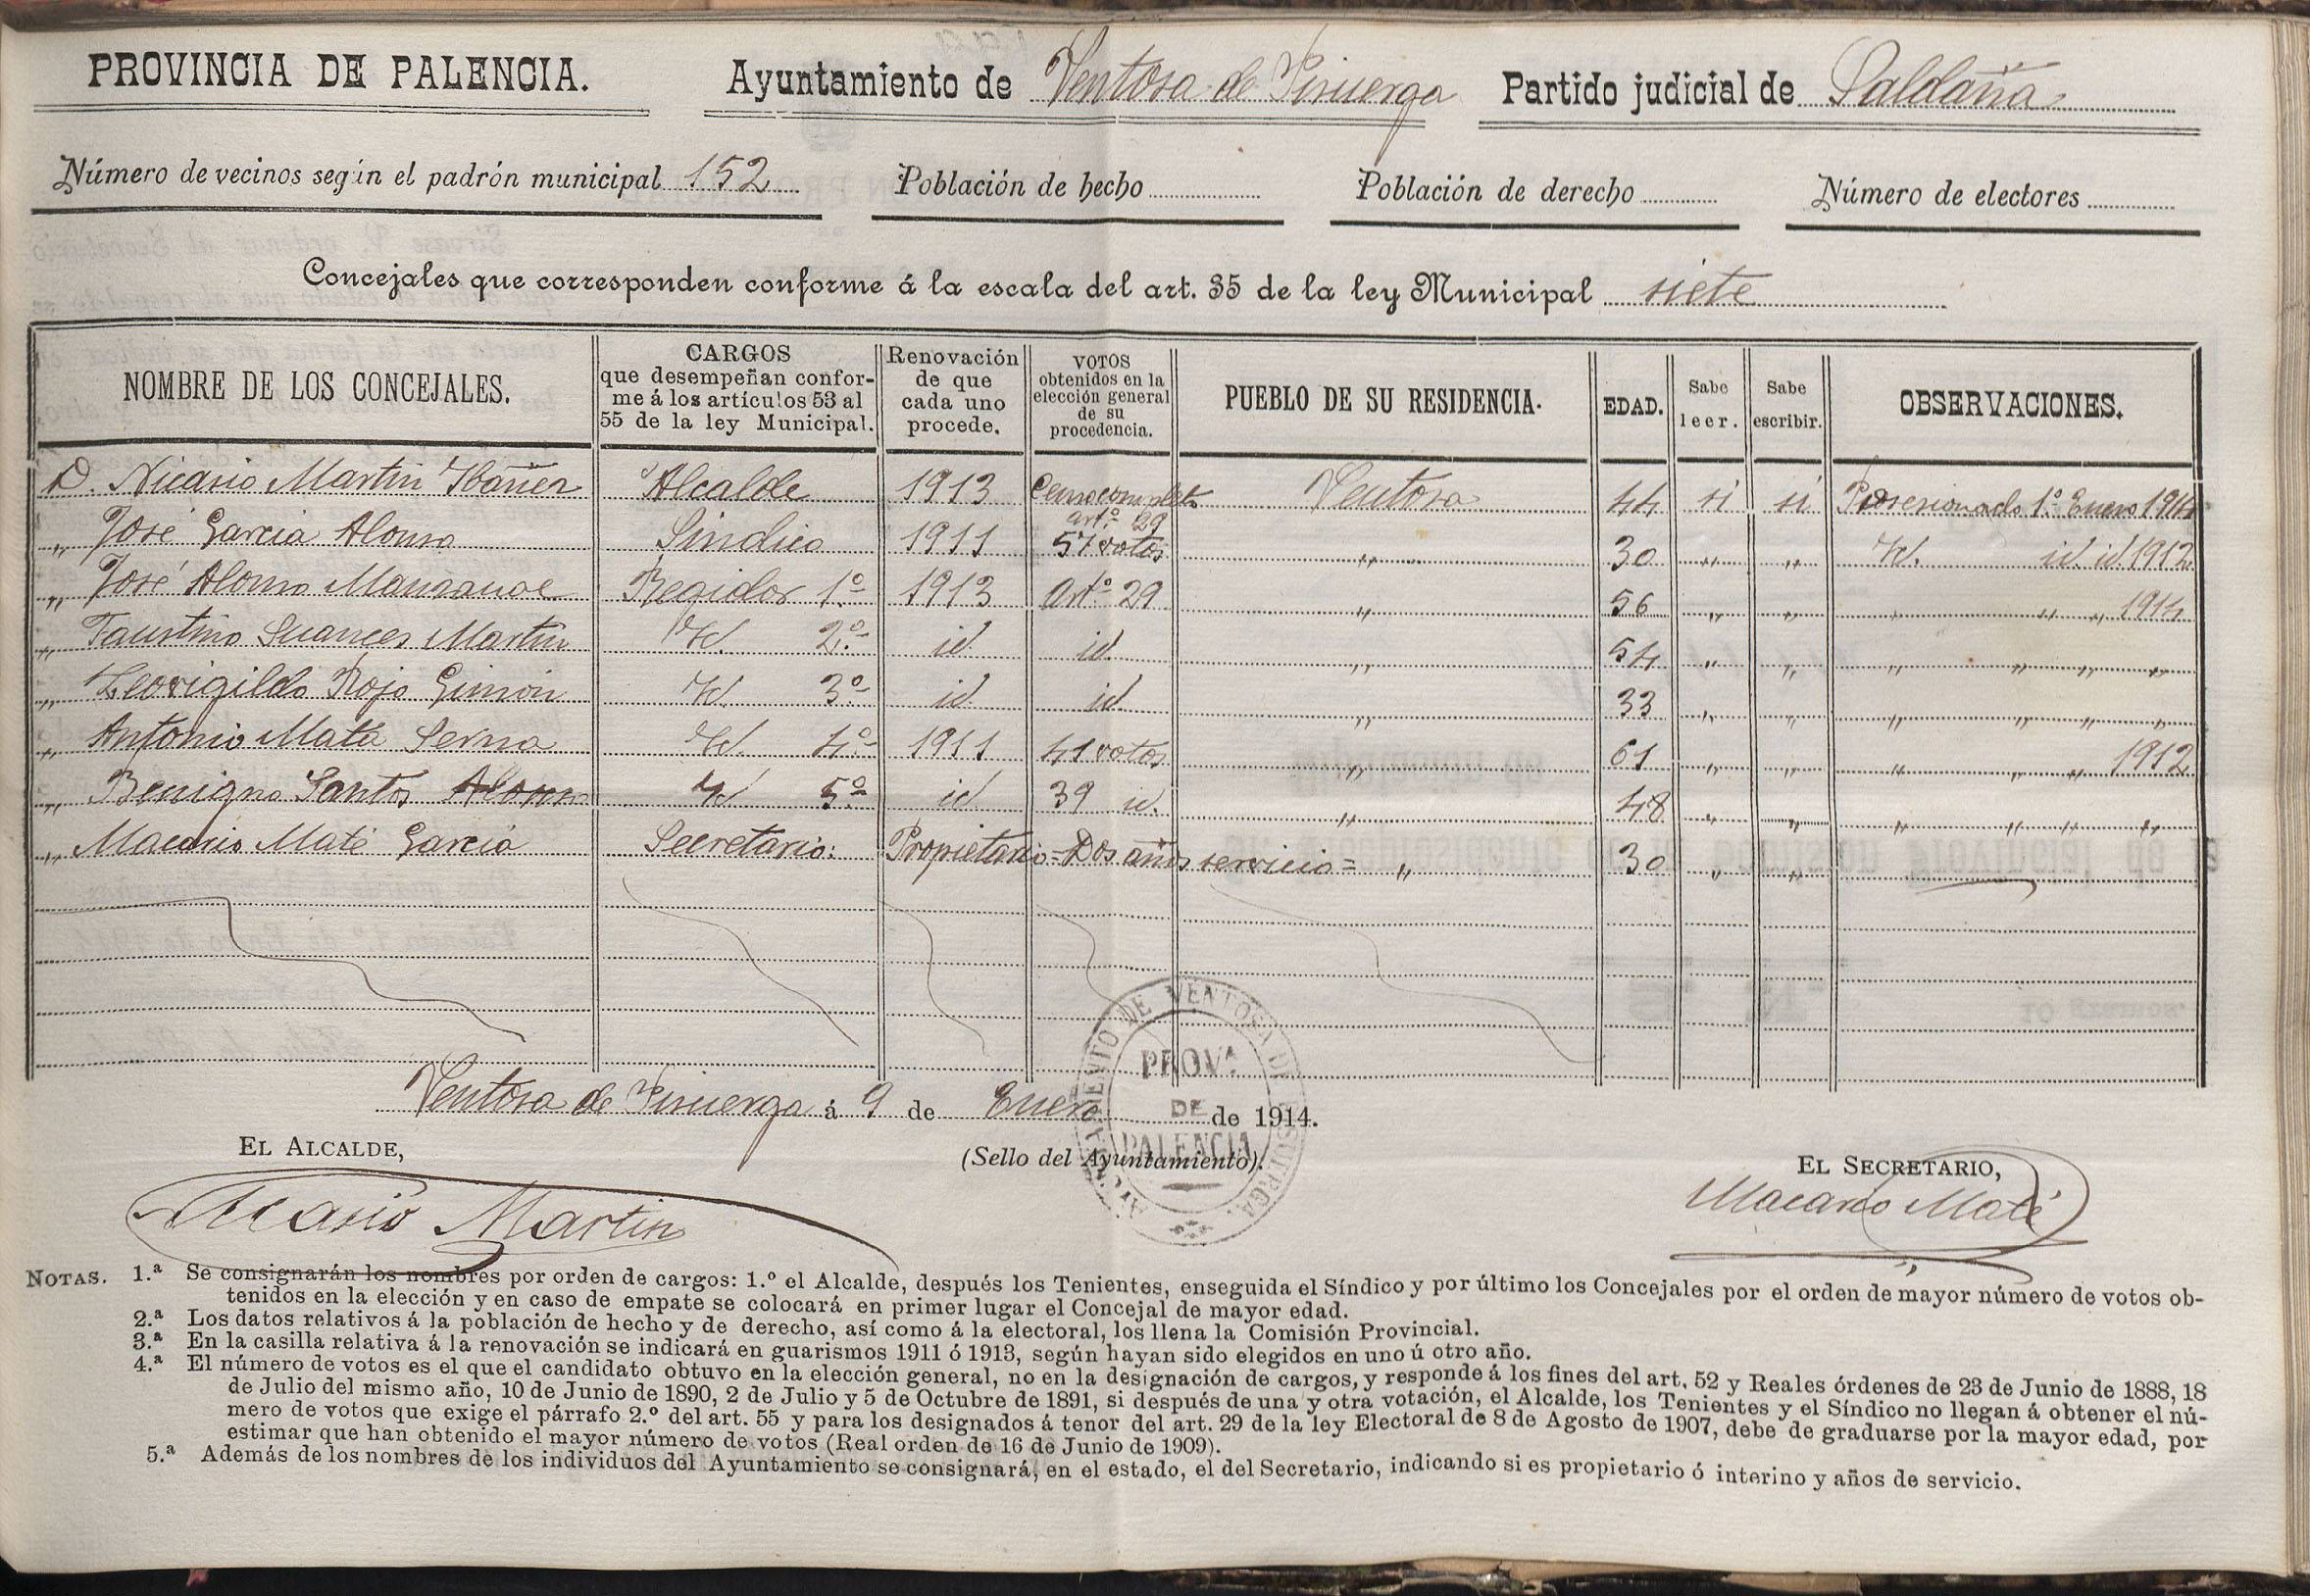 PROVINCIA DE PALENCIA. Ayuntamiento de Ventosa de Pisuerga Partido judicial de Saldaña
Número de vecinos según el padrón municipal 152 Población de hecho Población de derecho Número de electores
Concejales que corresponden conforme á la escala del art. 35 de la ley Municipal siete
NOMBRE DE LOS CONCEJALES. CARGOS que desempeñan conforme á los artículos 53 al 55 de la ley Municipal. Renovación de que cada uno procede. VOTOS obtenidos en la elección general de su procedencia. PUEBLO DE SU RESIDENCIA. EDAD. Sabe leer. Sabe escribir. OBSERVACIONES.
D. Nicasio Martin Ibáñez Alcalde 1913 art.º 29 Ventosa 44 si si Posesionado 1.º Enero 1914
„ José Garcia Alonso Sindico 1911 57 votos „ 30 „ „ Id. id id 1912
„ José Alonso Manzanal Regidor 1.º 1913 Art.º 29 „ 56 „ „ „ „ „ 1914
„ Faustino Suances Martin Id. 2.º id id. „ 54 „ „ „ „ „ „
„ Leovigildo Rojo Simón Id. 3.º id. id „ 33 „ „ „ „ „ „
„ Antonio Mata Serna Id. 4.º 1911 41 votos „ 61 „ „ „ „ „ 1912
„ Benigno Santos Alonso Id 5.º id 39 id. „ 48 „ „ „ „ „ „
„ Macario Maté Garcia Secretario: Propietario = Dos años servicio = „ 30 „ „
Ventosa de Pisuerga á 9 de Enero de 1914.
EL ALCALDE, (Sello del Ayuntamiento). EL SECRETARIO,
AYUNTAMIENTO DE VENTOSA DE PISUERGA
PROVª
DE
PALENCIA
Nicasio Martin Macario Maté
NOTAS. 1.ª Se consignarán los nombres por orden de cargos: 1.º el Alcalde, después los Tenientes, enseguida el Síndico y por último los Concejales por el orden de mayor número de votos ob-
tenidos en la elección y en caso de empate se colocará en primer lugar el Concejal de mayor edad.
2.ª Los datos relativos á la población de hecho y de derecho, así como á la electoral, los llena la Comisión Provincial.
3.ª En la casilla relativa á la renovación se indicará en guarismos 1911 ó 1913, según hayan sido elegidos en uno ú otro año.
4.ª El número de votos es el que el candidato obtuvo en la elección general, no en la designación de cargos, y responde á los fines del art. 52 y Reales órdenes de 23 de Junio de 1888, 18
de Julio del mismo año, 10 de Junio de 1890, 2 de Julio y 5 de Octubre de 1891, si después de una y otra votación, el Alcalde, los Tenientes y el Síndico no llegan á obtener el nú-
mero de votos que exige el párrafo 2.º del art. 55 y para los designados á tenor del art. 29 de la ley Electoral de 8 de Agosto de 1907, debe de graduarse por la mayor edad, por
estimar que han obtenido el mayor número de votos (Real orden de 16 de Junio de 1909).
5.ª Además de los nombres de los individuos del Ayuntamiento se consignará, en el estado, el del Secretario, indicando si es propietario ó interino y años de servicio.